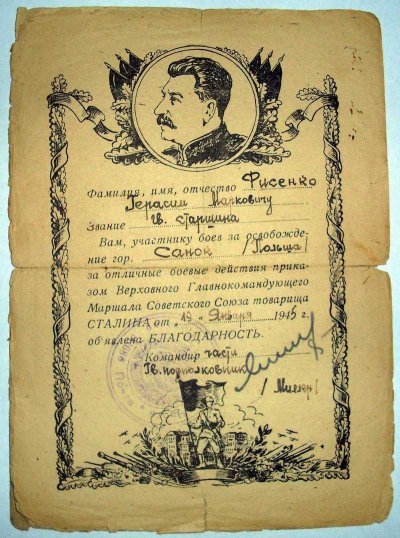 Фамилия, имя, отчество Фисенко
Герасим Маркович
Звание гв. старшина
Вам, участнику боев за освобожде-
ние гор. Санок /Польша/
за отличные боевые действия прика-
зом Верховного Главнокомандующего
Маршала Советского Союза товарища
СТАЛИНА от „19" Января 1945 г.
об'явлена БЛАГОДАРНОСТЬ.
Командир части
Гв. подполковник
/Миллер/